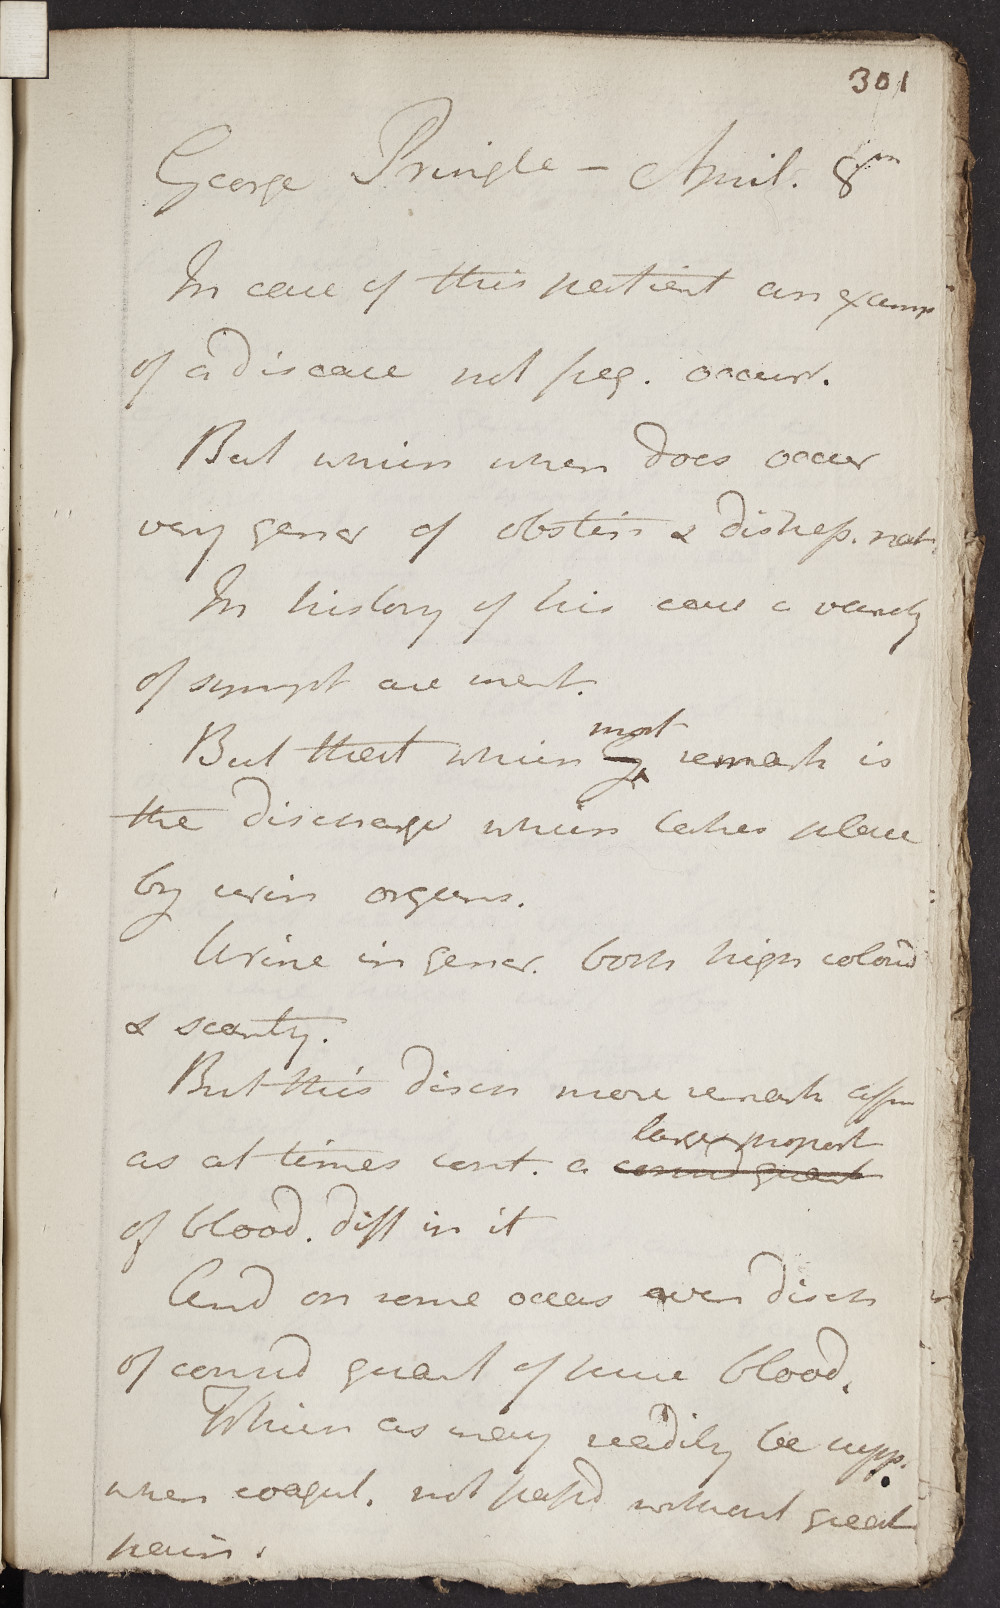 301
George Pringle - April. 8th
In case of this patient an examp
of a disease not freq. occur.
But which when does occur
very gener of obstin & distress. nat.
In history of his case a variety
of sympt are ment.
But that which most remark is
the discharge which takes place
by urin organs.
Urine in gener. both high colour'd
& scanty.
But this disch more remark
as at times cont. a large proport
consid quant
of blood. diff in it
And on some occas even disch
of consid quant of pure blood.
Which as may readily be supp.
when coagul. not pass'd without great
pain.